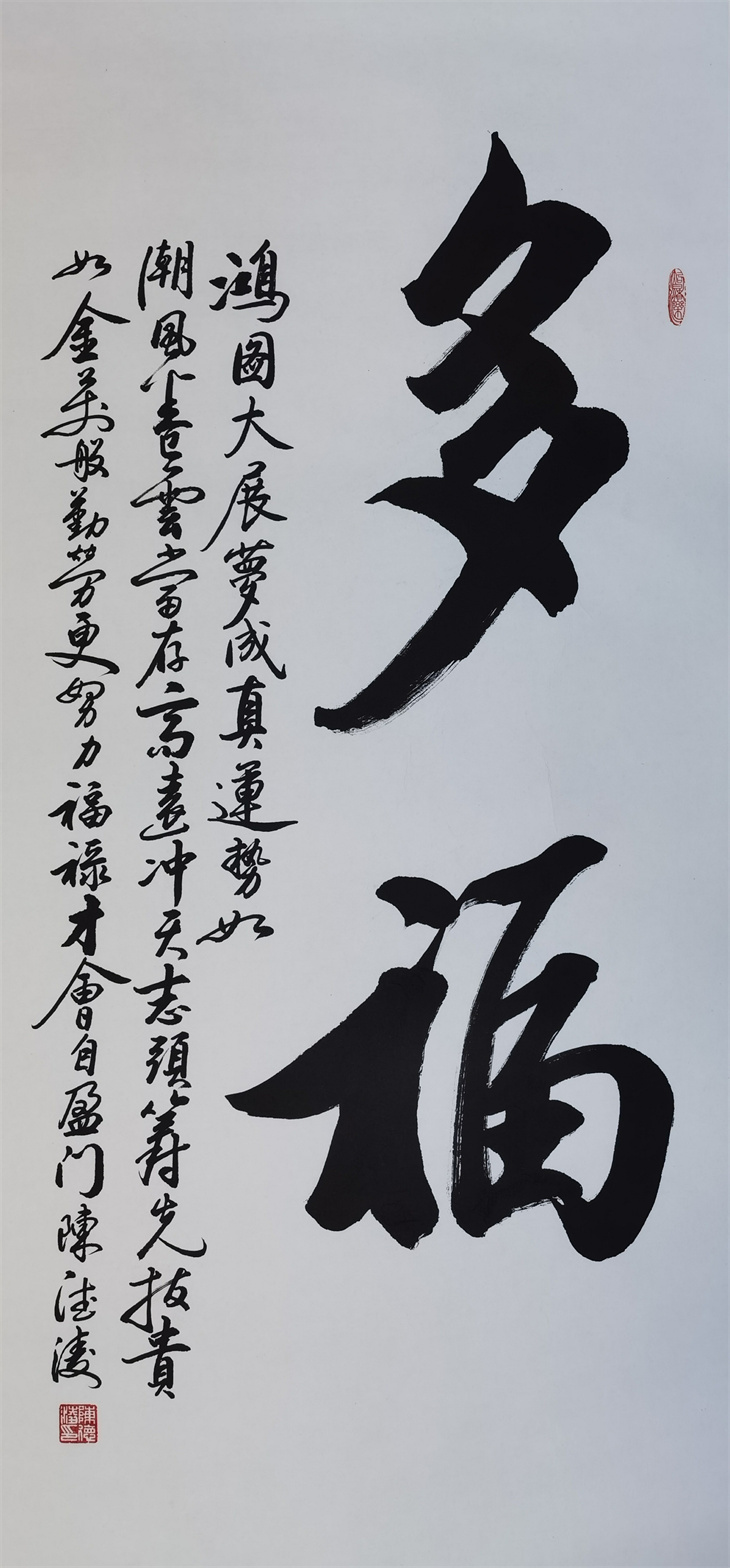 多福
鴻圖大展夢成真運勢如
潮風卷雲當存高遠冲天志頭籌先拔貴
如金萬般勤勞更努力福禄才會自盈门陳德凌